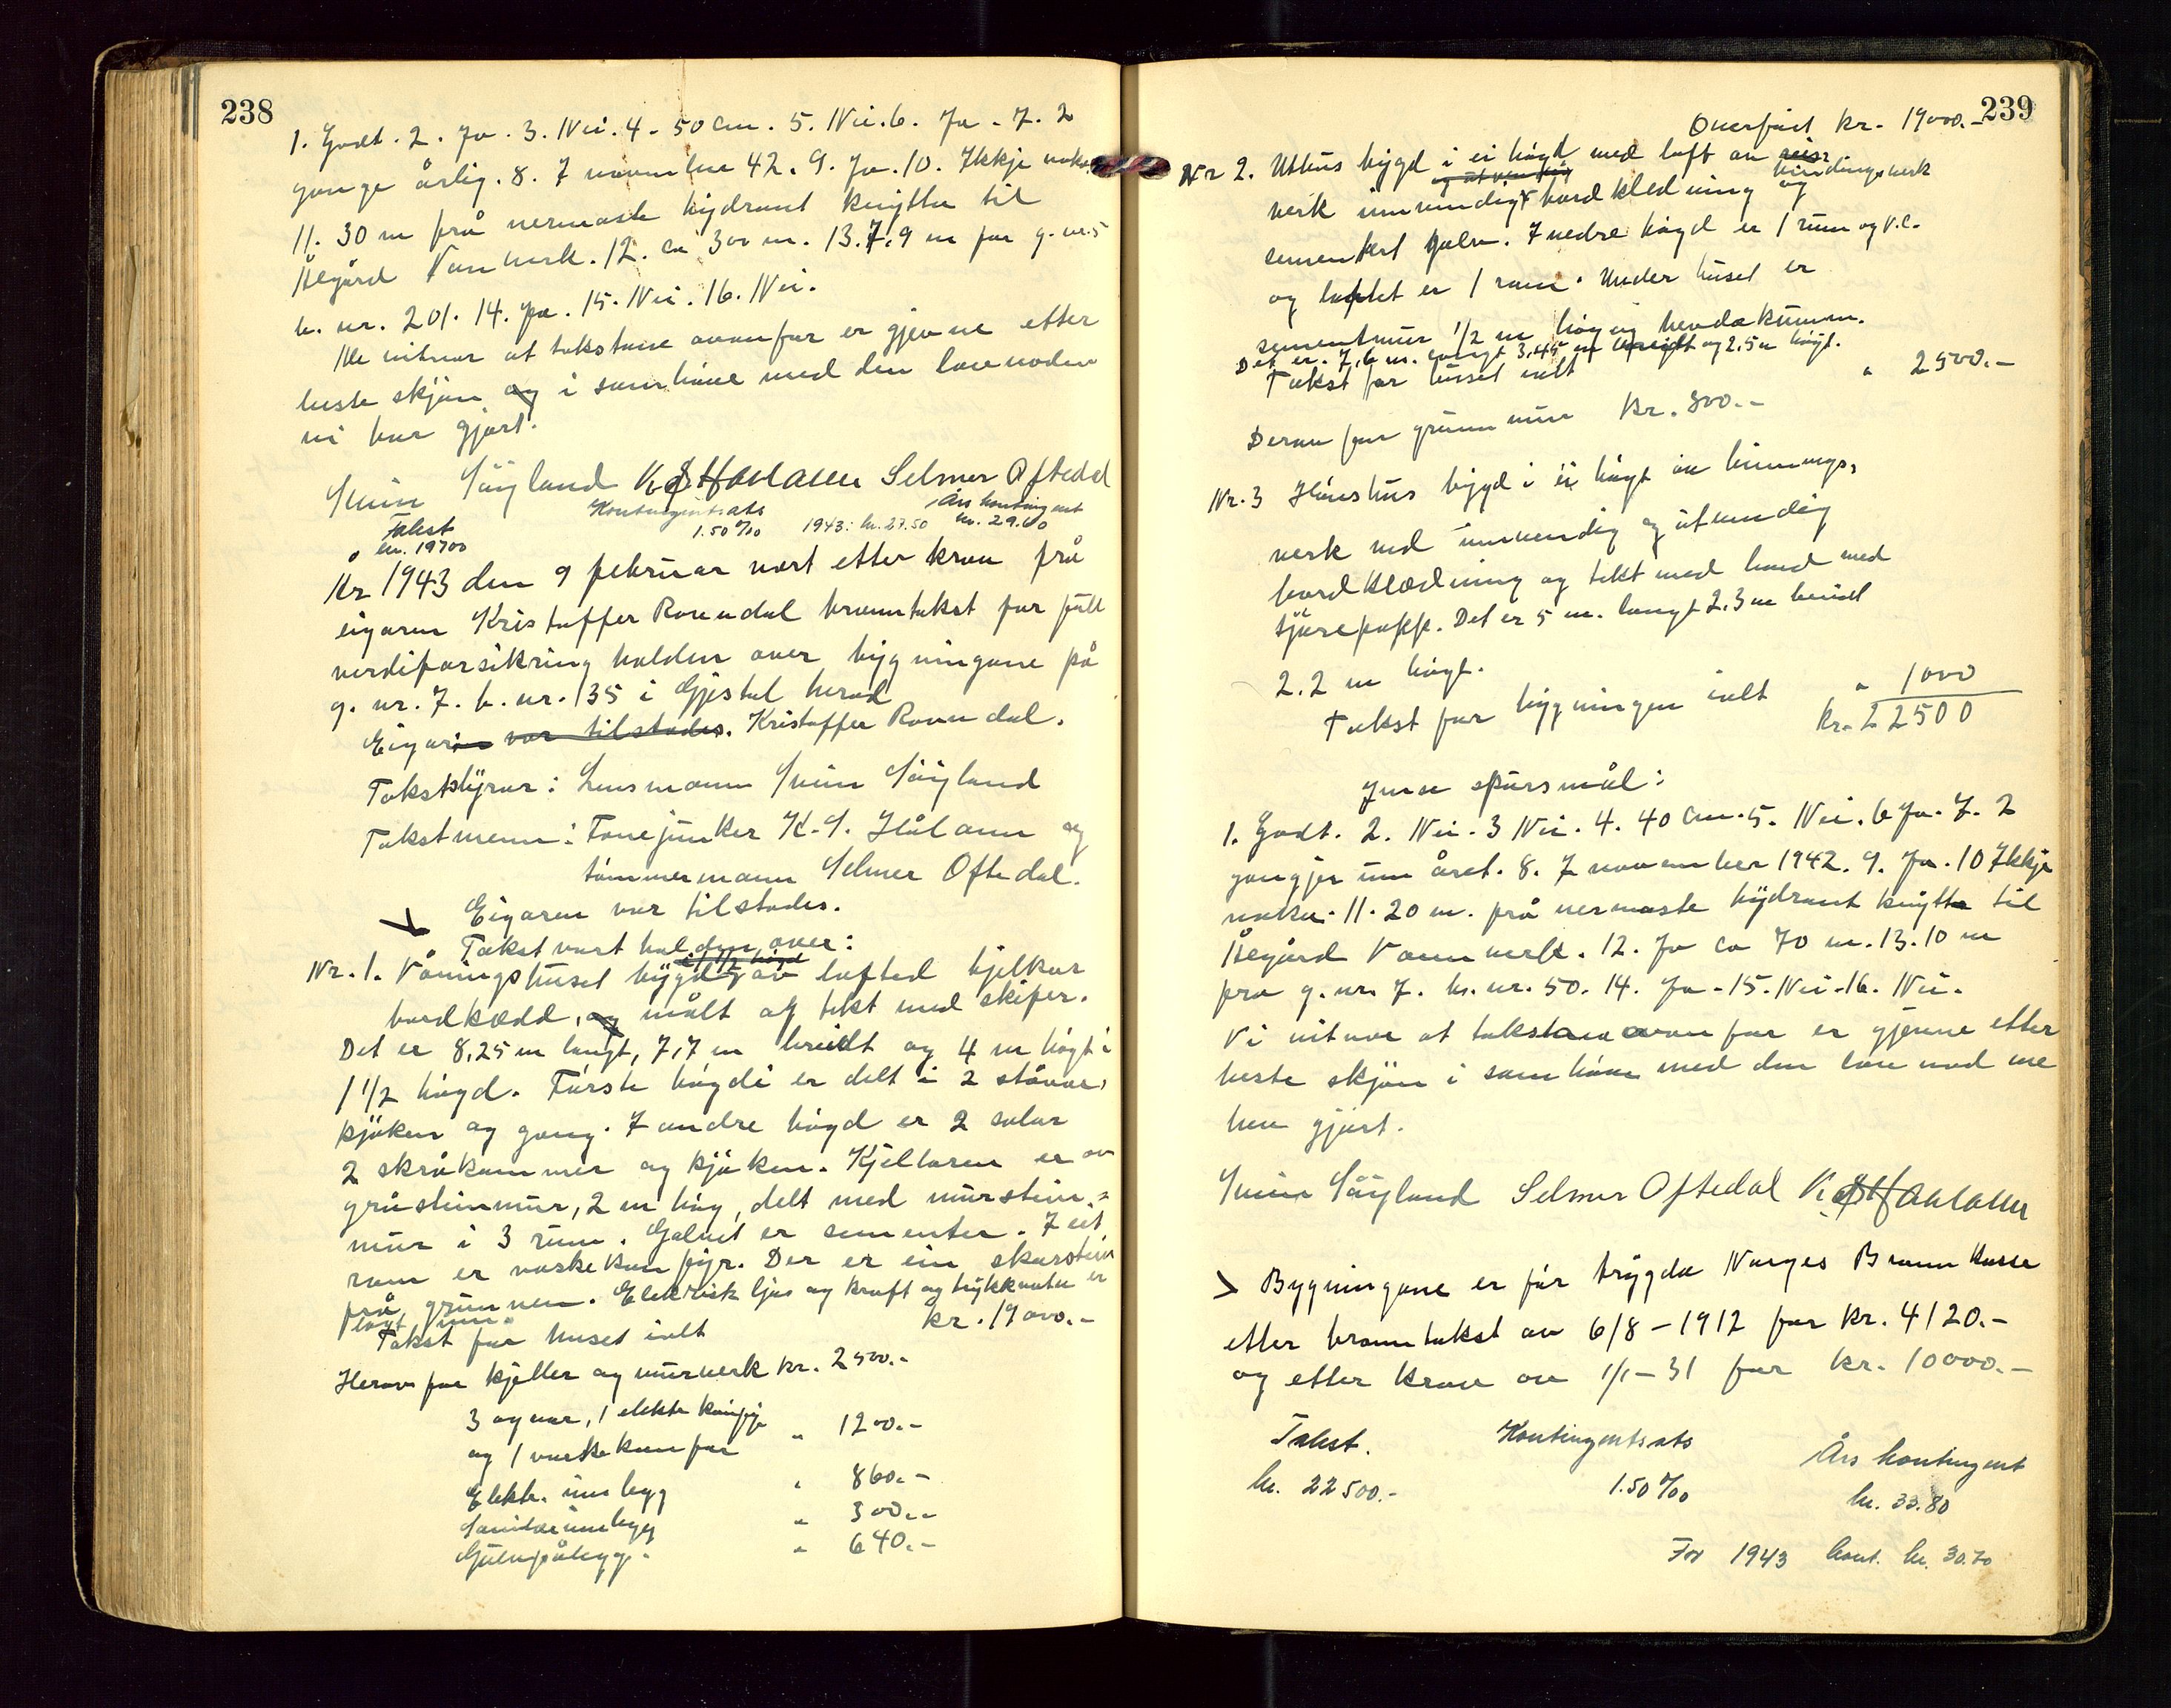 238
1. Godt. 2. Ja. 3. Nei. 4. 50 cm. 5. Nei. 6. Ja. 7. 2
gonge årlig. 8. 7 november 42. 9. Ja. 10. Ikkje
11. 30 m frå nermaste hydrant knytta til
Ålgård Vannverk. 12. ca 300 m. 13. 7,9 m for g. nr. 5
b. nr. 201. 14. Ja. 15. Nei. 16. Nei.
Me vitnar at takstane ovanfor er gjevne etter
beste skjøn og i samhøve med den lovenoden
vi har gjort.
Svein Søyland K. S. Haalann Selmer Oftedal
Takst Kontingentsats Års kontingent
kr. 19700 1.50 ‰ 1943: kr. 27.50 kr. 29.60
År 1943 den 9 februar vart etter krav frå
eigaren Kristoffer Ravndal branntakst for full
verdiforsikring halden over bygningane på
g. nr. 7. b. nr. 135 i Gjestal herad
Eigar var tilstades. Kristoffer Ravndal.
Takststyrar: Lensmann Svein Søyland
Takstmenn: Fanejunker K. S. Hålann og
tømmermann Selmer Oftedal.
Eigaren var tilstades.
Takst vart halden over:
i 1 1/2 høgd
Nr. 1. Våningshuset bygd av lafted bjelkar
bordkledd, og målt og tekt med skifer.
Det er 8,25 m langt, 7,7 m breidt og 4 m høgt i
1 1/2 høgd. Første høgdi er delt i 2 stover,
kjøken og gong. I andre høgd er 2 salar
2 skråkammer og kjøken. Kjellaren er av
gråsteinmur, 2 m høg, delt med murstein-
mur i 3 rum. Golvet er sementer. I eit
rom er vaskekomfyr. Der er ein skorstein
frå grunnen. Elektrisk ljos og kraft og trykkvatn er
lagt inn.
Takst for huset ialt kr. 19000.-
Herav for kjeller og murverk kr. 2500.-
3 ovnar, 1 elektr. komfyr
og 1 vaskekomfur " 1200.-
Elektr. innlegg " 860.-
Sanitærinnlegg " 300.-
Gulvpålegg. " 640.-
239
Overført kr. 19000.-
Nr 2. Uthus bygd i ei høgd med loft av reis
og utvendig bindingsverk
verk innvendig bordkledning og
sementert golv. I nedre høgd er 1 rum og v.c.
og loftet er 1 rom. Under huset er
sementmur 1/2 m høg og kum.
Det er 7,6 m. langt 3,45 m breidt og 2,5 m høgt.
Takst for huset ialt " 2500.-
Derav for grunnmur kr. 300.-
Nr. 3 Hønshus bygd i ei høgd av binnings,
verk med innvendig og utvendig
bordklædning og tekt med bord med
tjørepapp. Det er 5 m. langt 2,3 m breidt
2.2 m høgt.
Takst for bygningen ialt " 1000
kr. 22500
Ymse spursmål:
1. Godt. 2. Nei. 3 Nei. 4. 40 cm. 5. Nei. 6 Ja. 7. 2
gongjer um året. 8. 7 november 1942. 9. Ja. 10 Ikkje
noken. 11. 20 m. frå nermaste hydrant knytta til
Ålgård Vannverk. 12. Ja ca 70 m. 13. 10 m
fra g. nr. 7. b. nr. 50. 14. Ja. 15. Nei. 16. Nei.
Vi vitnar at takstane ovanfor er gjevne etter
beste skjøn i samhøve med den lovnad me
hev gjort.
Svein Søyland Selmer Oftedal K. S. Haalann
Bygningane er før trygda Norges Brannkasse
etter branntakst av 6/8-1912 for kr. 4120.-
og etter krav av 1/1-31 for kr. 10000.-
Takst. Kontingentsats Års kontingent
kr. 22500.- 1.50 ‰ kr. 33.80
For 1943 kont. kr. 30.70